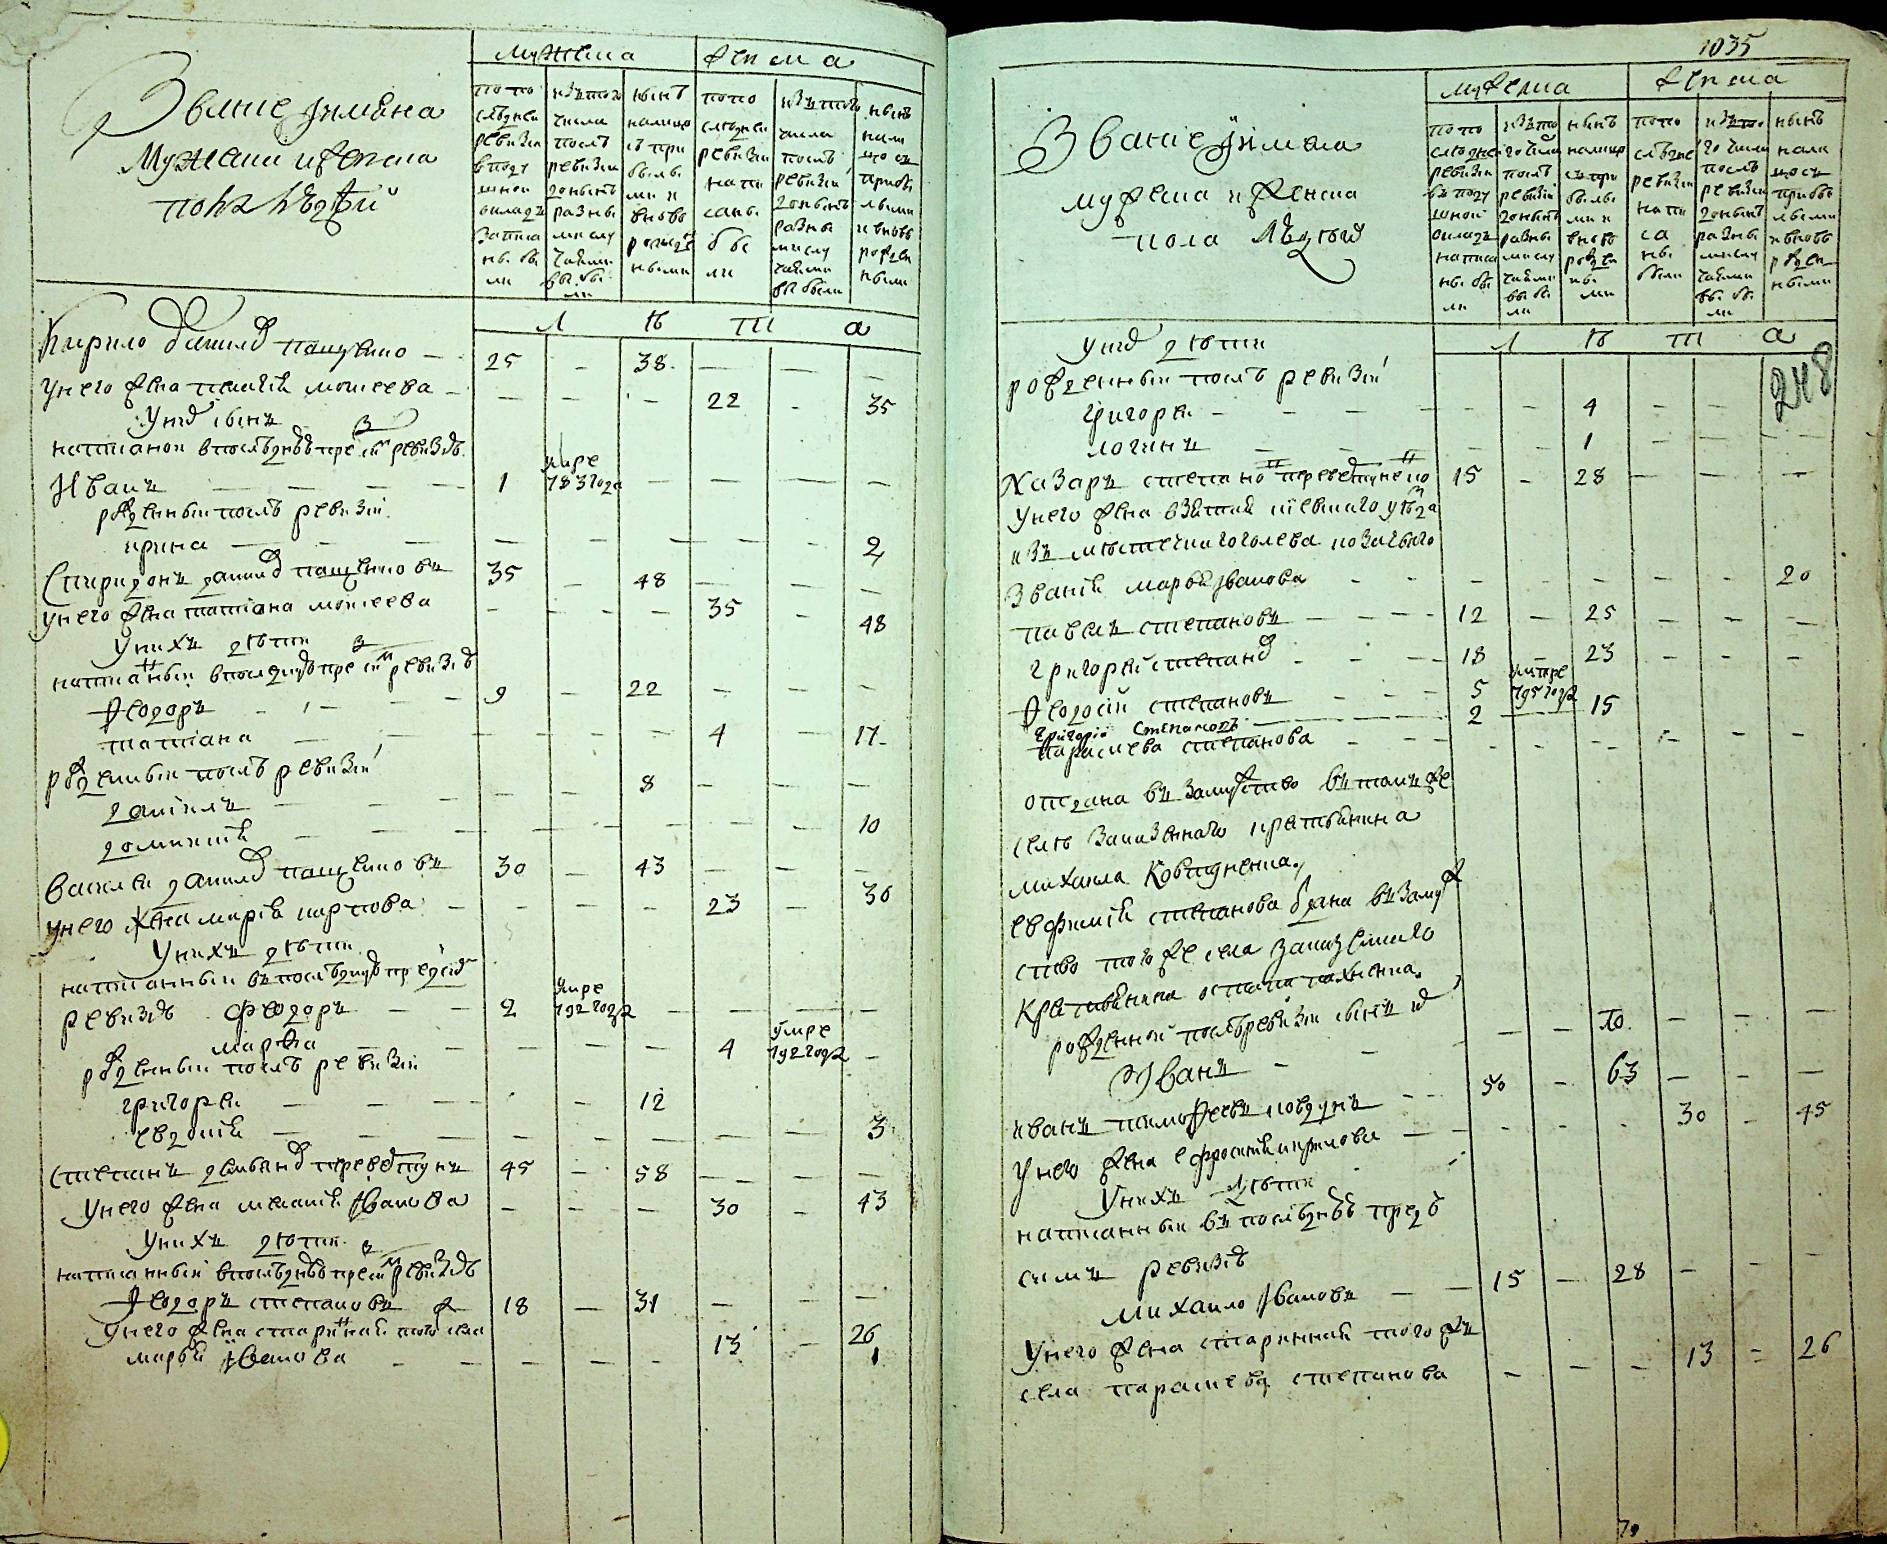 Звание и имяна
мужеска и женска
пола людей
мужеска
женска
по по следней ревизии в подушной окладъ записаны были
изъ того числа после ревизии до ныне разными случаями выбыли
ныне налицо съ прибылыми и вновь рожденными
по последней ревизии написаны были
изъ того числа после ревизии до ныне разными случаями выбыли
ныне налицо съ прибылыми и вновь рожденными
л ѣ т а
Кирило данилов пащенко — 25 - 38 — — —
у него жена пелагѣя моисеева — — — - 22 - 35
у них сынъ
написаной в последней пред сим ревизiе
Иванъ — — — 1 умре 783 года — — — —
рожденный после ревизiи
ирина — — — — — — — — 2
Спиридонъ данилов пащенковъ 35 — 48 — — —
у него жена татiана моисеева - - — 35 - 48
у нихъ дѣти
написанныи в последней пред сим ревизiе
Ѳедоръ - - — 9 — 22 — — —
татiана — — — — — 4 — 17
рожденныи после ревизiи
данiилъ — — — — 8 — — —
домникiя — — — — — — — — 10
василеи данилов пащенковъ 30 — 43 — — —
у него жена марiя карпова — - - — 23 — 36
у нихъ дѣти
написанныи въ последней пред сим
ревизiе Федоръ — — 2 умре 792 года — — — —
марѳа — — — — 4 умре 792 года —
рожденныи после ревизiи
григореи — — — - — 12
евдокiя — — — — — — — — — 3
степанъ демьянов переветунъ 45 — 58 — — — —
у него жена меланiя Иванова — — — 30 — 43
у нихъ дѣти
написанныи в последней пред сим ревизiе
Ѳедоръ степановъ 18 — 31 — — —
у него жена старинная того села
марья Иванова — — — — — — 13 — 26
1035
Звание и имяна
мужеска и женска
пола людей
мужеска
женска
по по следней ревизии въ подушной окладъ написаны были
изъ того числа после ревизии до ныне разными случаями выбыли
ныне налицо съ прибылыми и вновь рожденными
по последней ревизии написаны были
изъ того числа после ревизии до ныне разными случаями выбыли
ныне налицо съ прибылыми и вновь рожденными
л ѣ т а
248
у них дѣти
рожденныи после ревизiи
григореи — — — — — — 4 — —
логинъ — — — — 1 — — —
Назаръ степанов переветуненко 15 - 28 — — —
у него жена взятая кiевского уѣзда
изъ местечка гоголева козачьяго
званiя марья Иванова - - - - - - - 20
павелъ степановъ — — — 12 — 25 — — —
григорей степанов - - — 18 — 23 - - -
Ѳедосiй степановъ — — — 5 умре 795 года
григорiй степановъ — — — 2 — 15
параскева степанова — — — — — — — —
отдана въ замужство въ томъ же
селѣ заказенного крестьянина
михаила Ковтуненка
евфимiя степанова отдана въ замуж
ство того же села заказенного
крестьянина остапа пахненка
рожденной после ревизiи сынъ их
Иванъ — — — — 10 — — —
иванъ тимоѳеевъ ковтунъ — — 50 - 63 — — —
у него жена ефросинiя кирилова — — — — - - 30 - 45
у нихъ дѣти
написанныи въ последней предъ
симъ ревизiе
михаило Ивановъ — — 15 — 28 — — —
у него жена старинная того жъ
села параскева степанова — — — 13 = 26